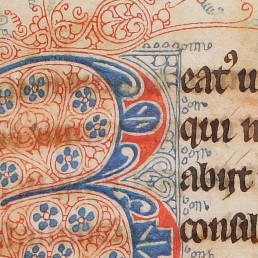 Beatꝰ u
qui n
abijt
consil